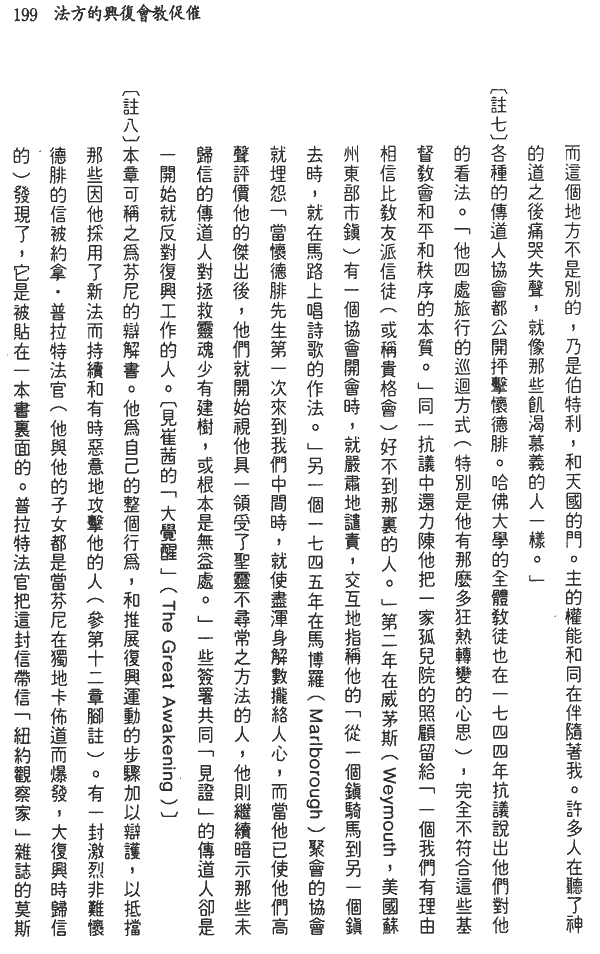 199 法方的興復會教促催
而這個地方不是別的，乃是伯特利，和天國的門。主的權能和同在伴隨著我。許多人在聽了神
的道之後痛哭失聲，就像那些飢渴慕義的人一樣。」
〔註七〕各種的傳道人協會都公開抨擊懷德腓。哈佛大學的全體教徒也在一七四四年抗議說出他們對他
的看法。「他四處旅行的巡迴方式（特別是他有那麼多狂熱轉變的心思），完全不符合這些基
督教會和平和秩序的本質。」同一抗議中還力陳他把一家孤兒院的照顧留給「一個我們有理由
相信比教友派信徒（或稱貴格會）好不到那裏的人。」第二年在威茅斯（Weymouth，美國蘇
州東部市鎮）有一個協會開會時，就嚴肅地譴責，交互地指稱他的「從一個鎮騎馬到另一個鎮
去時，就在馬路上唱詩歌的作法。」另一個一七四五年在馬博羅（Marlborough）聚會的協會
就埋怨「當懷德腓先生第一次來到我們中間時，就使盡渾身解數攏絡人心，而當他已使他們高
聲評價他的傑出後，他們就開始視他具一領受了聖靈不尋常之方法的人，他則繼續暗示那些未
歸信的傳道人對拯救靈魂少有建樹，或根本是無益處。」一些簽署共同「見證」的傳道人卻是
一開始就反對復興工作的人。〔見崔茜的「大覺醒」（The Great Awakening）〕
〔註八〕本章可稱之爲芬尼的辯解書。他爲自己的整個行爲，和推展復興運動的步驟加以辯護，以抵擋
那些因他採用了新法而持續和有時惡意地攻擊他的人（參第十二章腳註）。有一封激烈非難懷
德腓的信被約拿・普拉特法官（他與他的子女都是當芬尼在獨地卡佈道而爆發，大復興時歸信
的）發現了，它是被貼在一本書裏面的。普拉特法官把這封信帶信「紐約觀察家」雜誌的莫斯